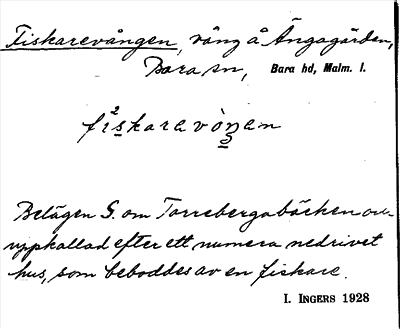 Fiskarevången, vång å Ängagården,
Bara sn, Bara hd, Malm. l.
fiskaravòŋen
Belägen S. om Torrebergabäcken och
uppkallad efter ett numera nedrivet
hus, som beboddes av en fiskare.
I. INGERS 1928